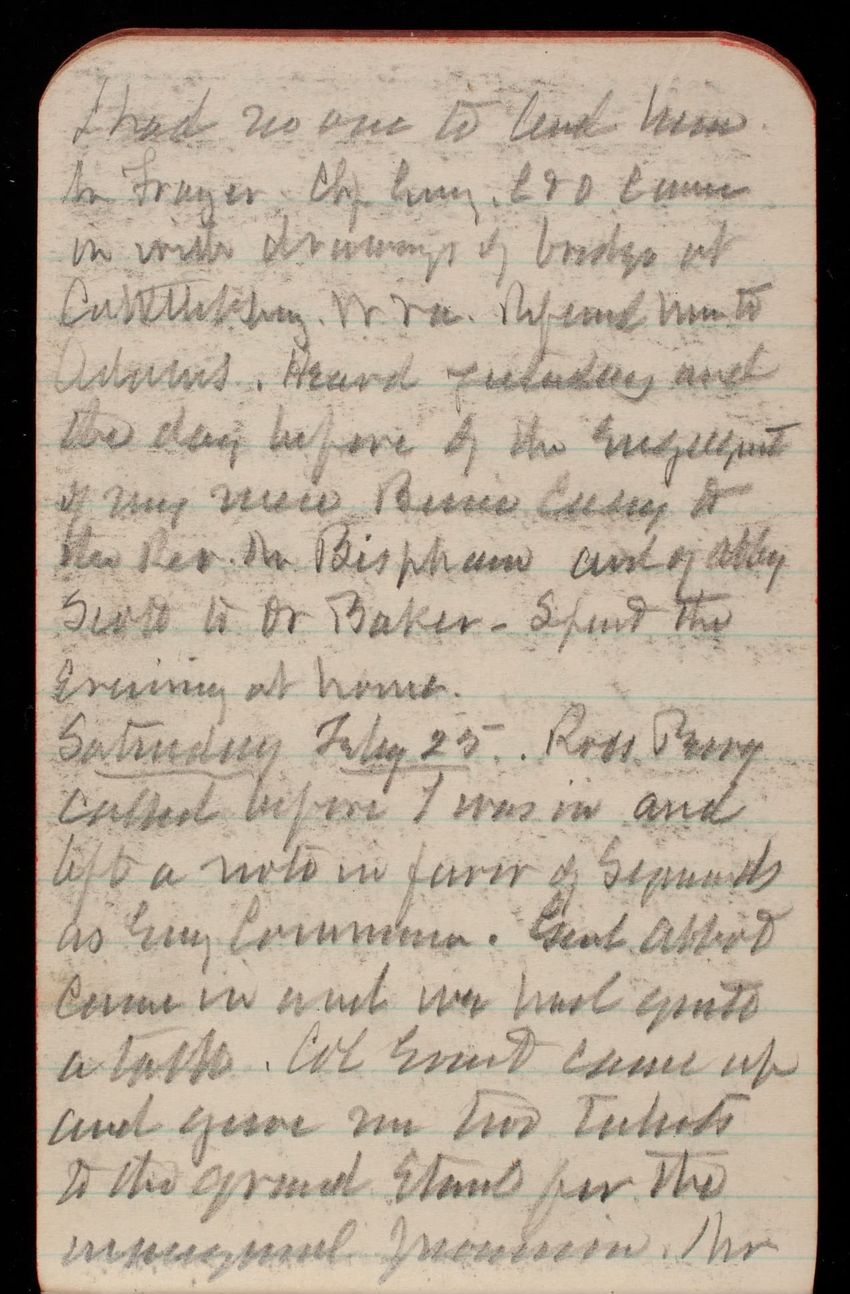 I had no one to lend him
Mr Frazer Chf Eng. C & O came
in with drawings of bridge at
Catlettsburg. W Va. Refered him to
Adams. Heard yesterday and
the day before of the Engagement
of my niece Bessie Casey to
the Rev. Mr Bispham and of Abby
Scott to Dr Baker - Spent the
Evening at home.
Saturday Feby 25. Ross Perry
called before I was in and
left a note in favor of
as Eng Commr. Genl Abbot
came in and we had quite
a talk. Col Ernst came up
and gave me two tickets
to the grand Stand for the
inaugural Procession. Mr